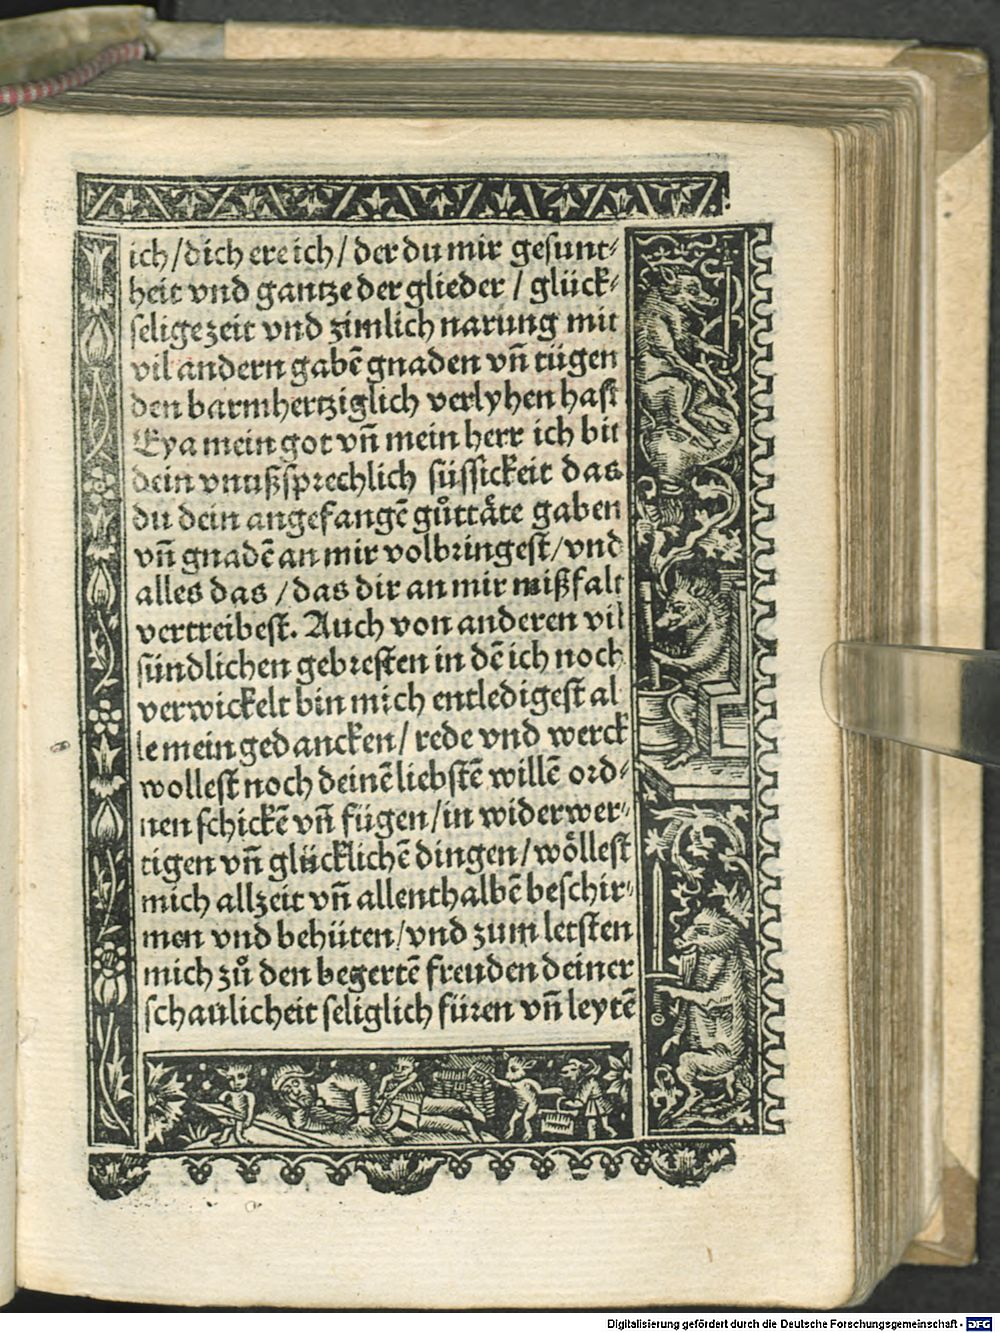 ich/dich ere ich/ der du mir gesunt⸗
heit vnd gantze der glieder / glück⸗
selige zeit vnd zimlich narung mit
vil andern gabē gnaden vñ tügen
den barmhertziglich verlyhen hast
Eya mein got vñ mein herr ich bit
dein vnußsprechlich süssickeit das
du dein angefangē gůttäte gaben
vñ gnadē an mir volbringest/vnd
alles das /das dir an mir mißfalt
vertreibest. Auch von anderen vil
sündlichen gebresten in dē ich noch
verwickelt bin mich entledigest al
le mein gedancken/ rede vnd werck
wollest noch deinē liebstē willē ord⸗
nen schickē vñ fügen/in widerwer⸗
tigen vñ glücklichē dingen/wöllest
mich allzeit vñ allenthalbē beschir⸗
men vnd behüten/vnd zum letsten
mich zů den begertē freuden deiner
schaulicheit seliglich füren vñ leytē
Digitalisierung gefördert durch die Deutsche Forschungsgemeinschaft - DFG